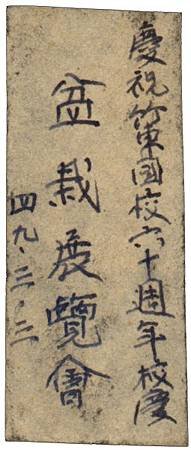 慶祝竹東國校六十週年校慶
盆栽展覽會
四九・二・二